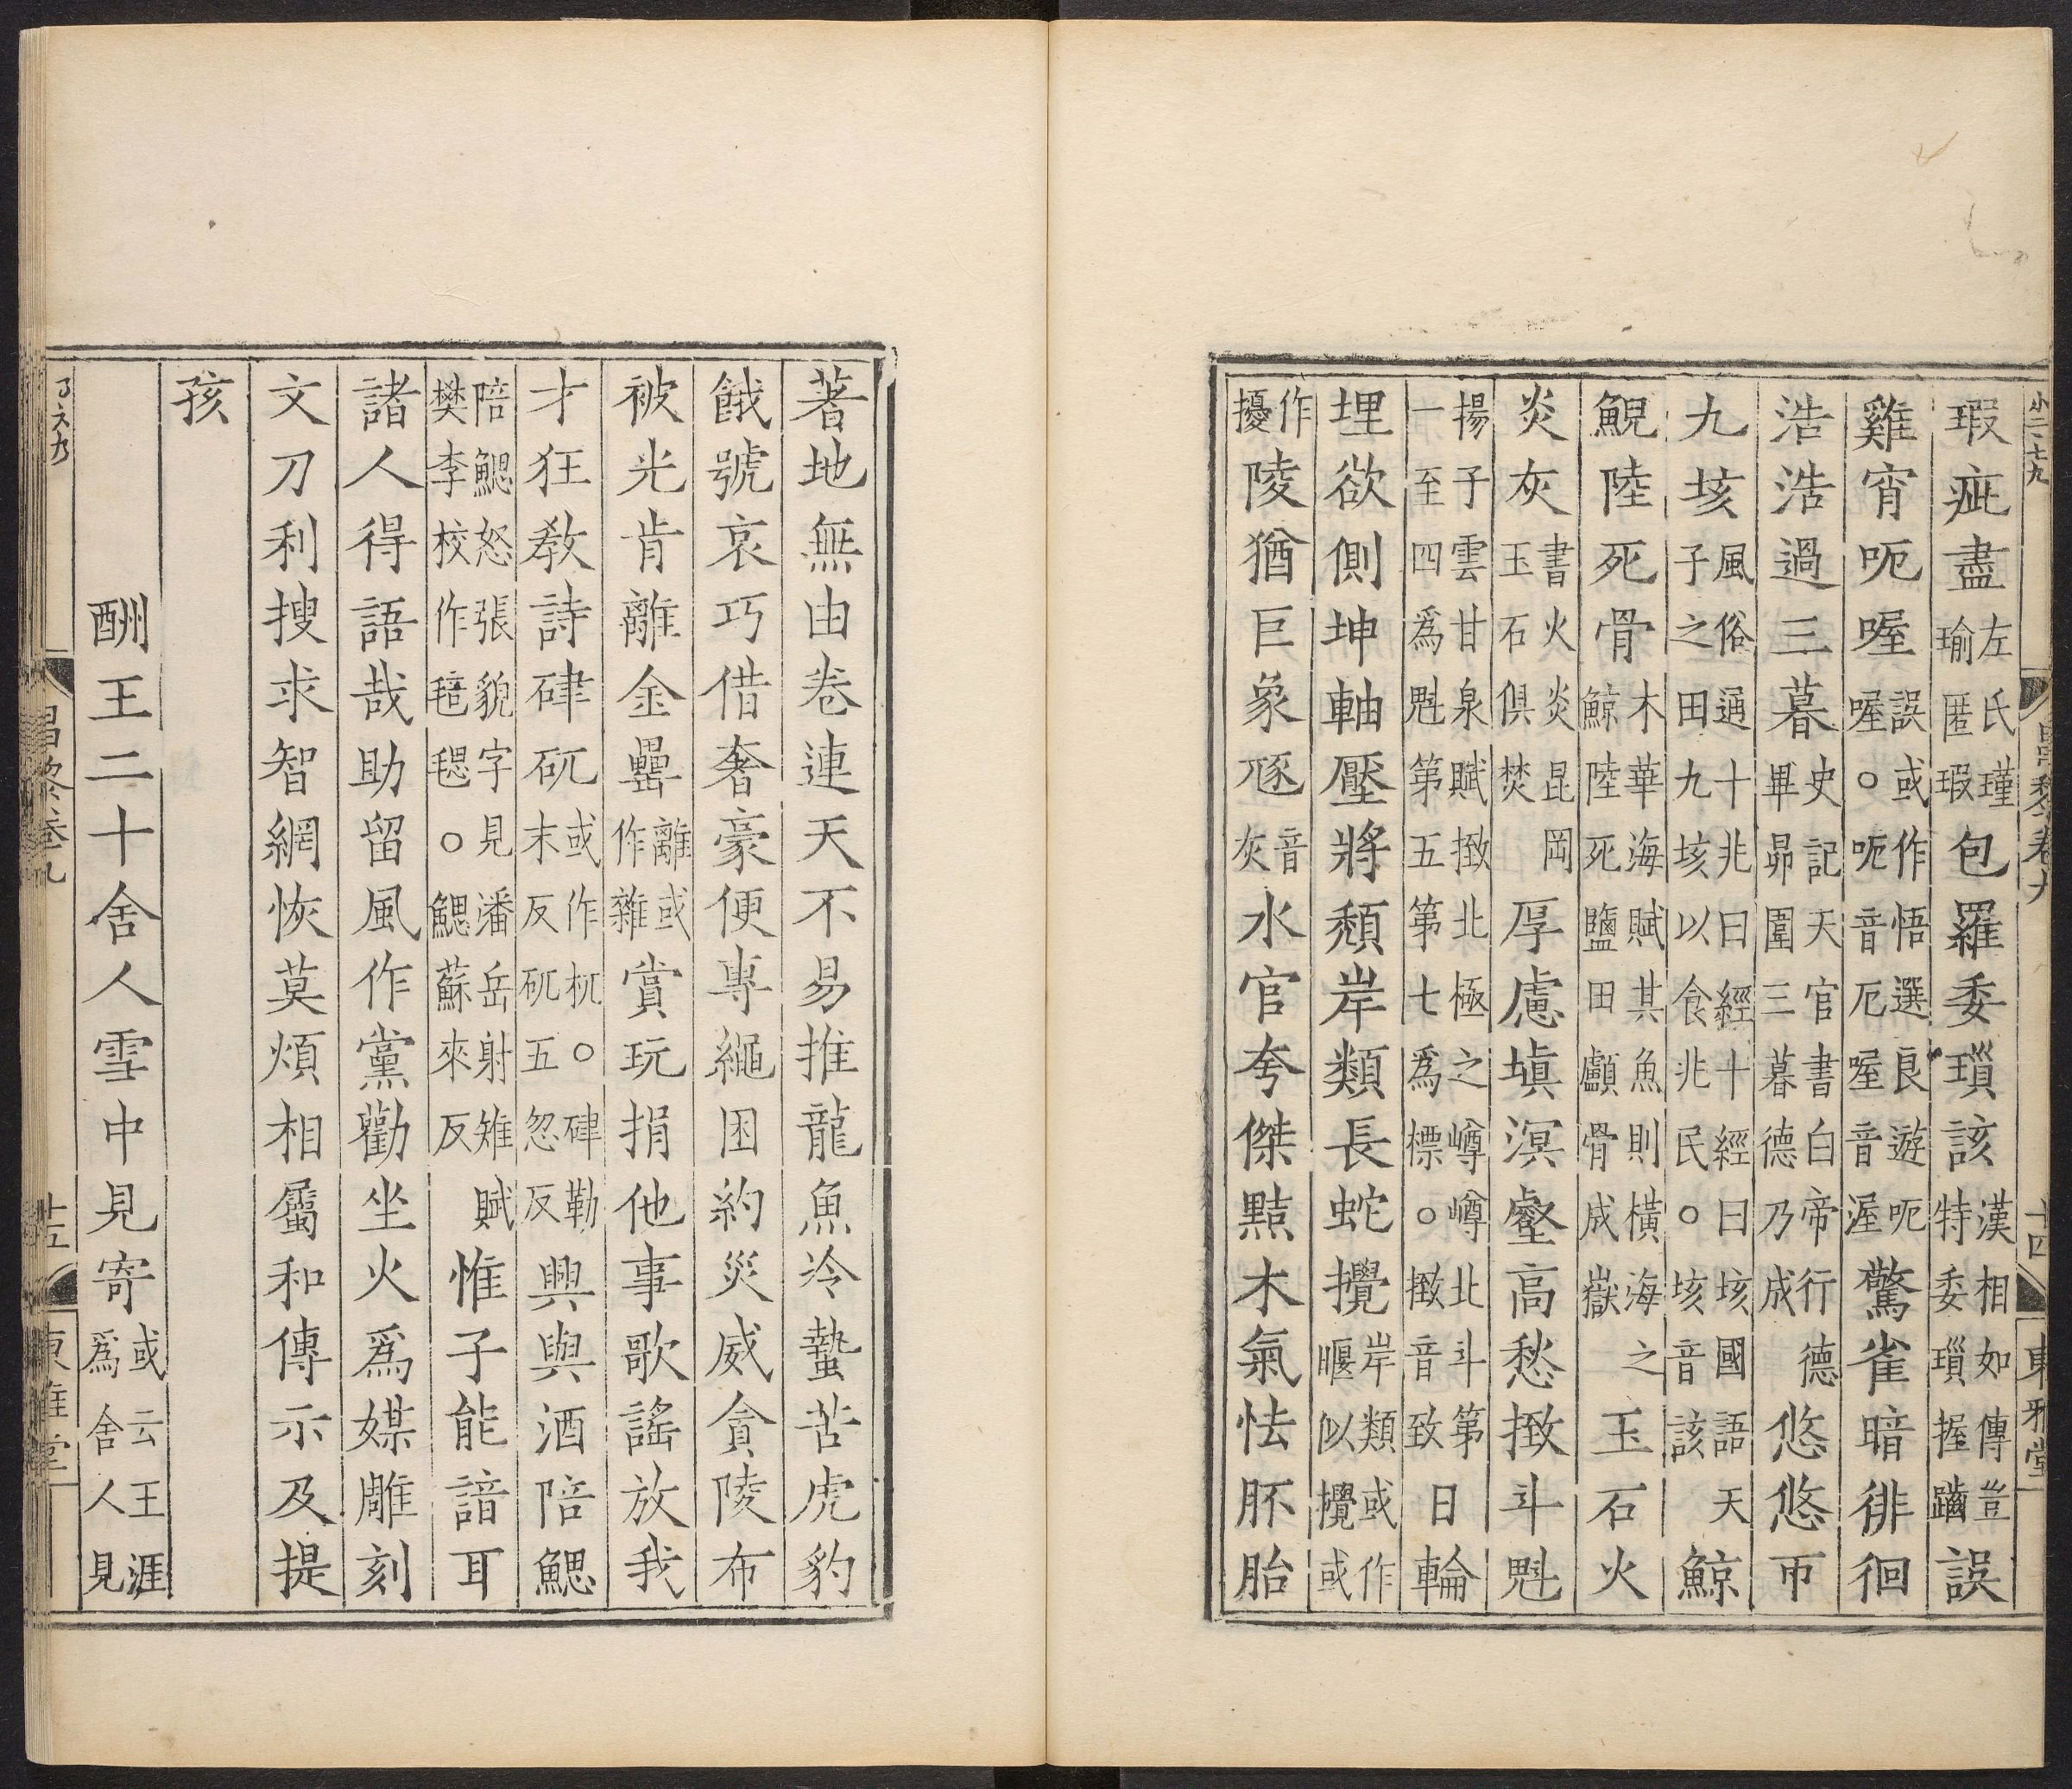 瑕疵盡左氏瑾瑜匿瑕包羅委瑣該漢相如傳豈特委瑣握齱誤
雞宵呃喔誤或作悟選良遊呃喔○呃音厄喔音渥驚雀暗徘徊
浩浩過三暮史記天官書白帝行德畢昴圍三暮德乃成悠悠帀
九垓風俗通十兆曰經十經曰垓國語天子之田九垓以食兆民○垓音該鯨
鯢陸死骨木華海賦其魚則橫海之鯨陸死鹽田顱骨成嶽玉石火
炎灰書火炎昆岡玉石俱焚厚慮塡溟壑高愁㨖斗魁
揚子雲甘泉賦㨖北極之嶟嶟北斗第一至四爲魁第五第七爲標○㨖音致日輪
埋欲側坤軸壓將頹岸類長蛇攪岸類或作堰似攪或
作擾陵猶巨象豗音灰水官夸傑黠木氣怯胚胎
著地無由卷連天不易推龍魚冷蟄苦虎豹
餓號哀巧借奢豪便專繩困約災威貪陵布
被光肯離金罍離或作雜賞玩捐他事歌謠放我
才狂敎詩硉矹或作杌○硉勒末反矹五忽反興與酒陪鰓
陪鰓怒張貌字見潘岳射雉賦樊李校作毰毸○鰓蘇來反惟子能諳耳
諸人得語哉助留風作黨勸坐火爲媒雕刻
文刀利搜求智網恢莫煩相屬和傳示及提
孩
酬王二十舍人雪中見寄或云王涯爲舍人見
昌黎卷九
十四
東雅堂
昌黎卷九
十五
東雅堂